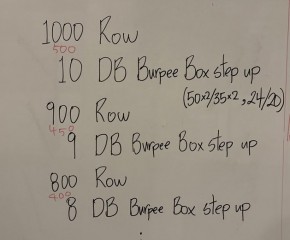 1000 Row
500
10 DB Burpee Box step up
(50x2/35x2, 24/20)
900 Row
450
9 DB Burpee Box step up
800 Row
400
8 DB Burpee Box step up